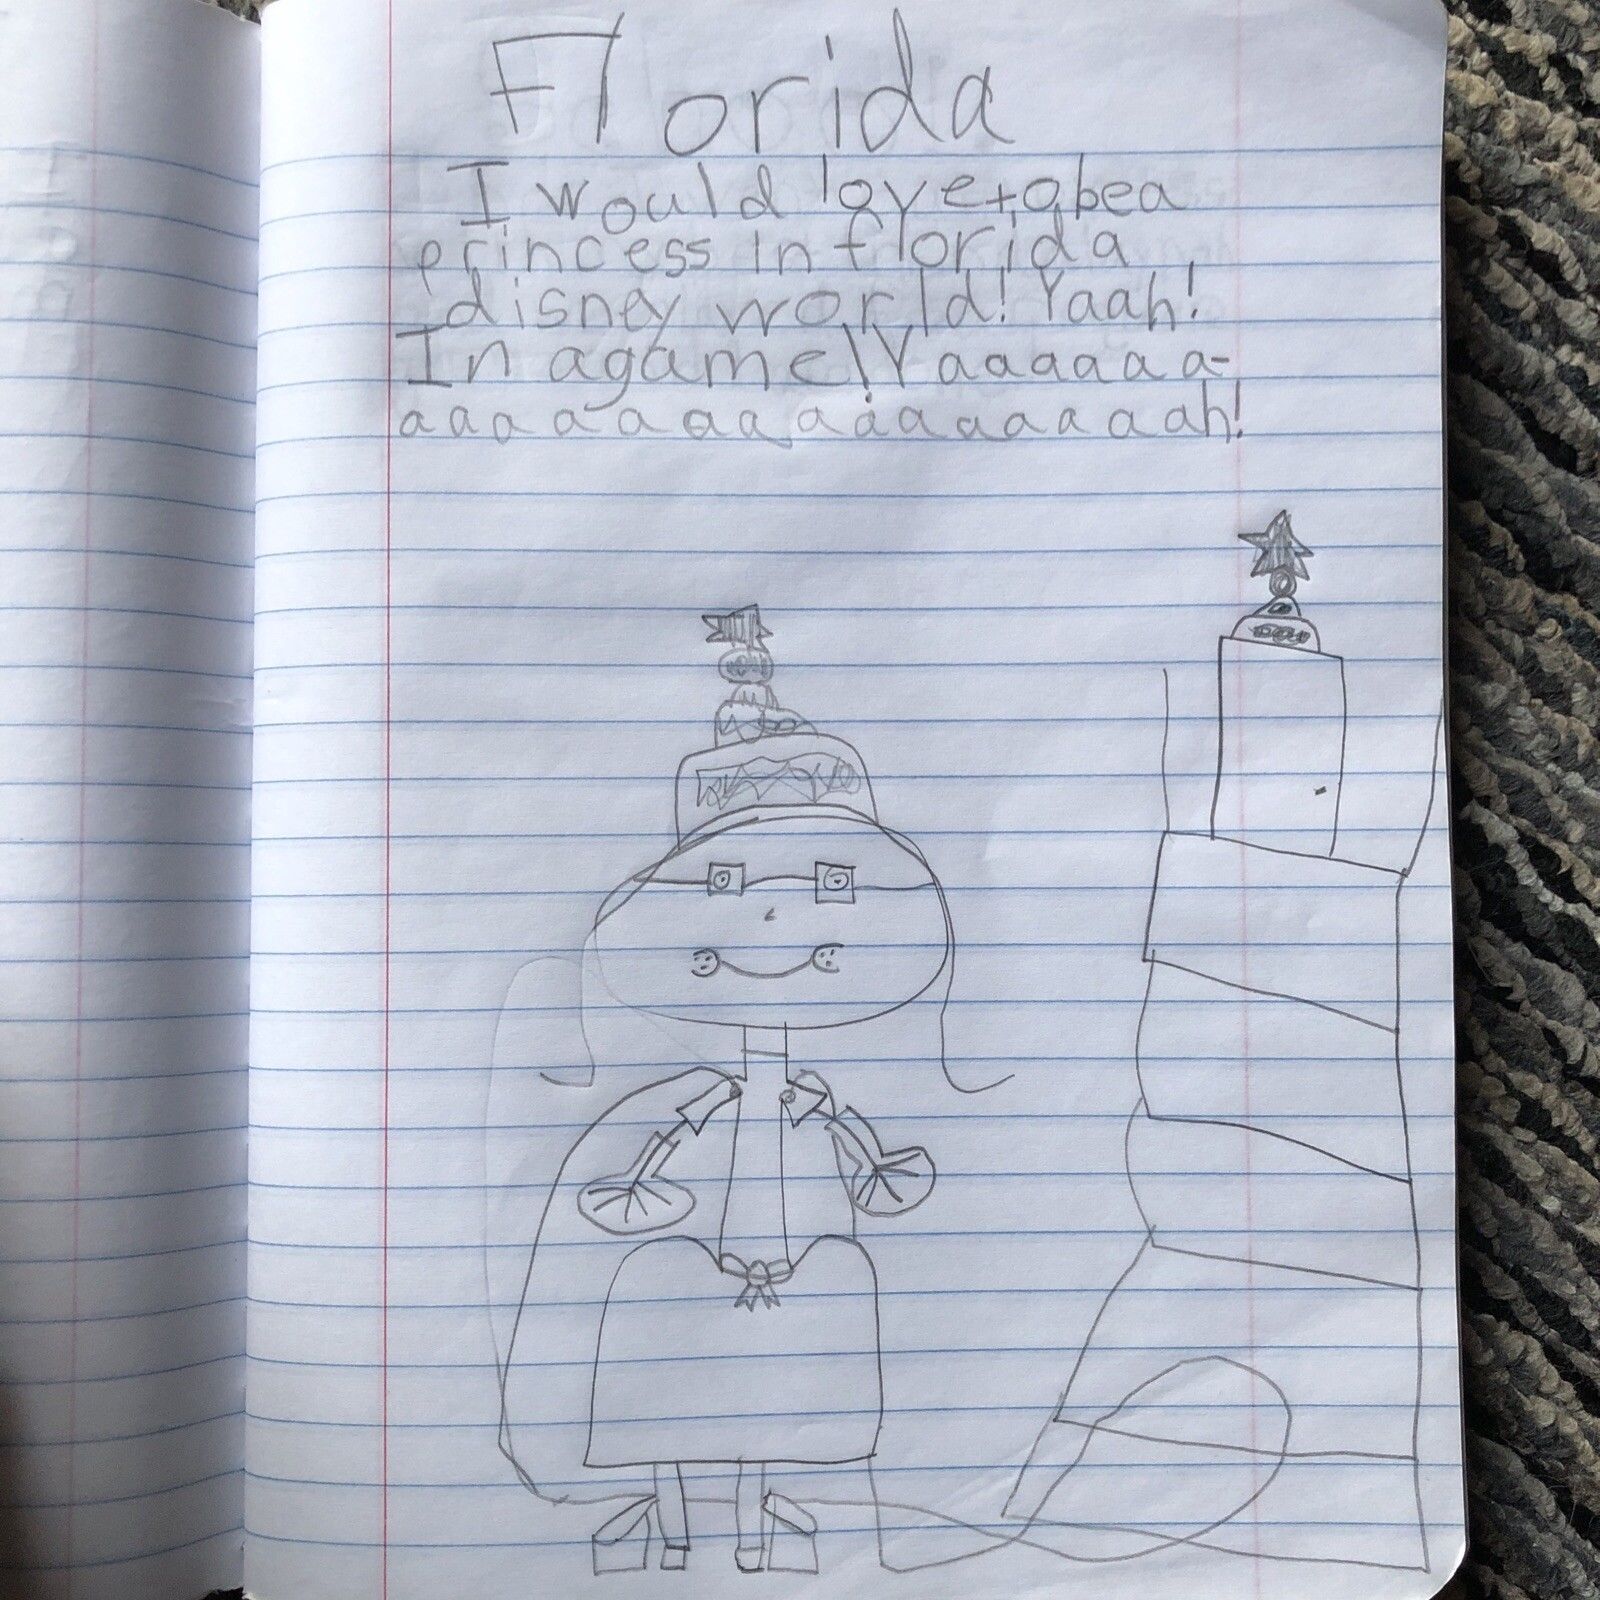 Florida
I would love to be a
princess in florida
disney world! Yaah!
In a game! Yaaaaaaa-
aaaaaaaaaaaaaaaah!